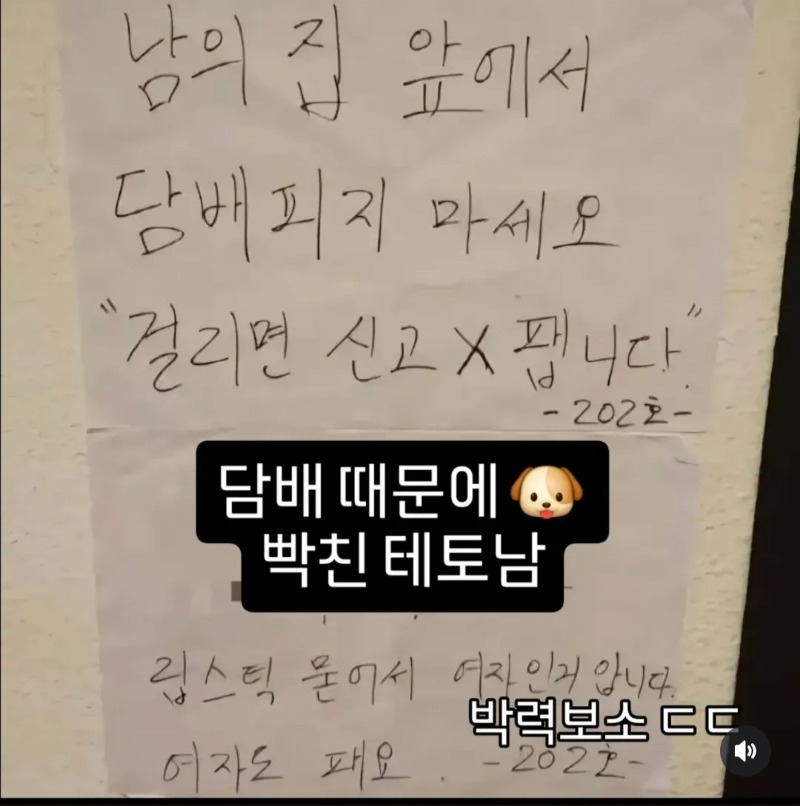 남의 집 앞에서
담배피지 마세요
"걸리면 신고 X 팹니다."
-202호-
담배 때문에🐶
빡친 테토남
립스틱 묻어서 여자인거 압니다.
박력보소 ㄷㄷ
여자도 패요. -202호-